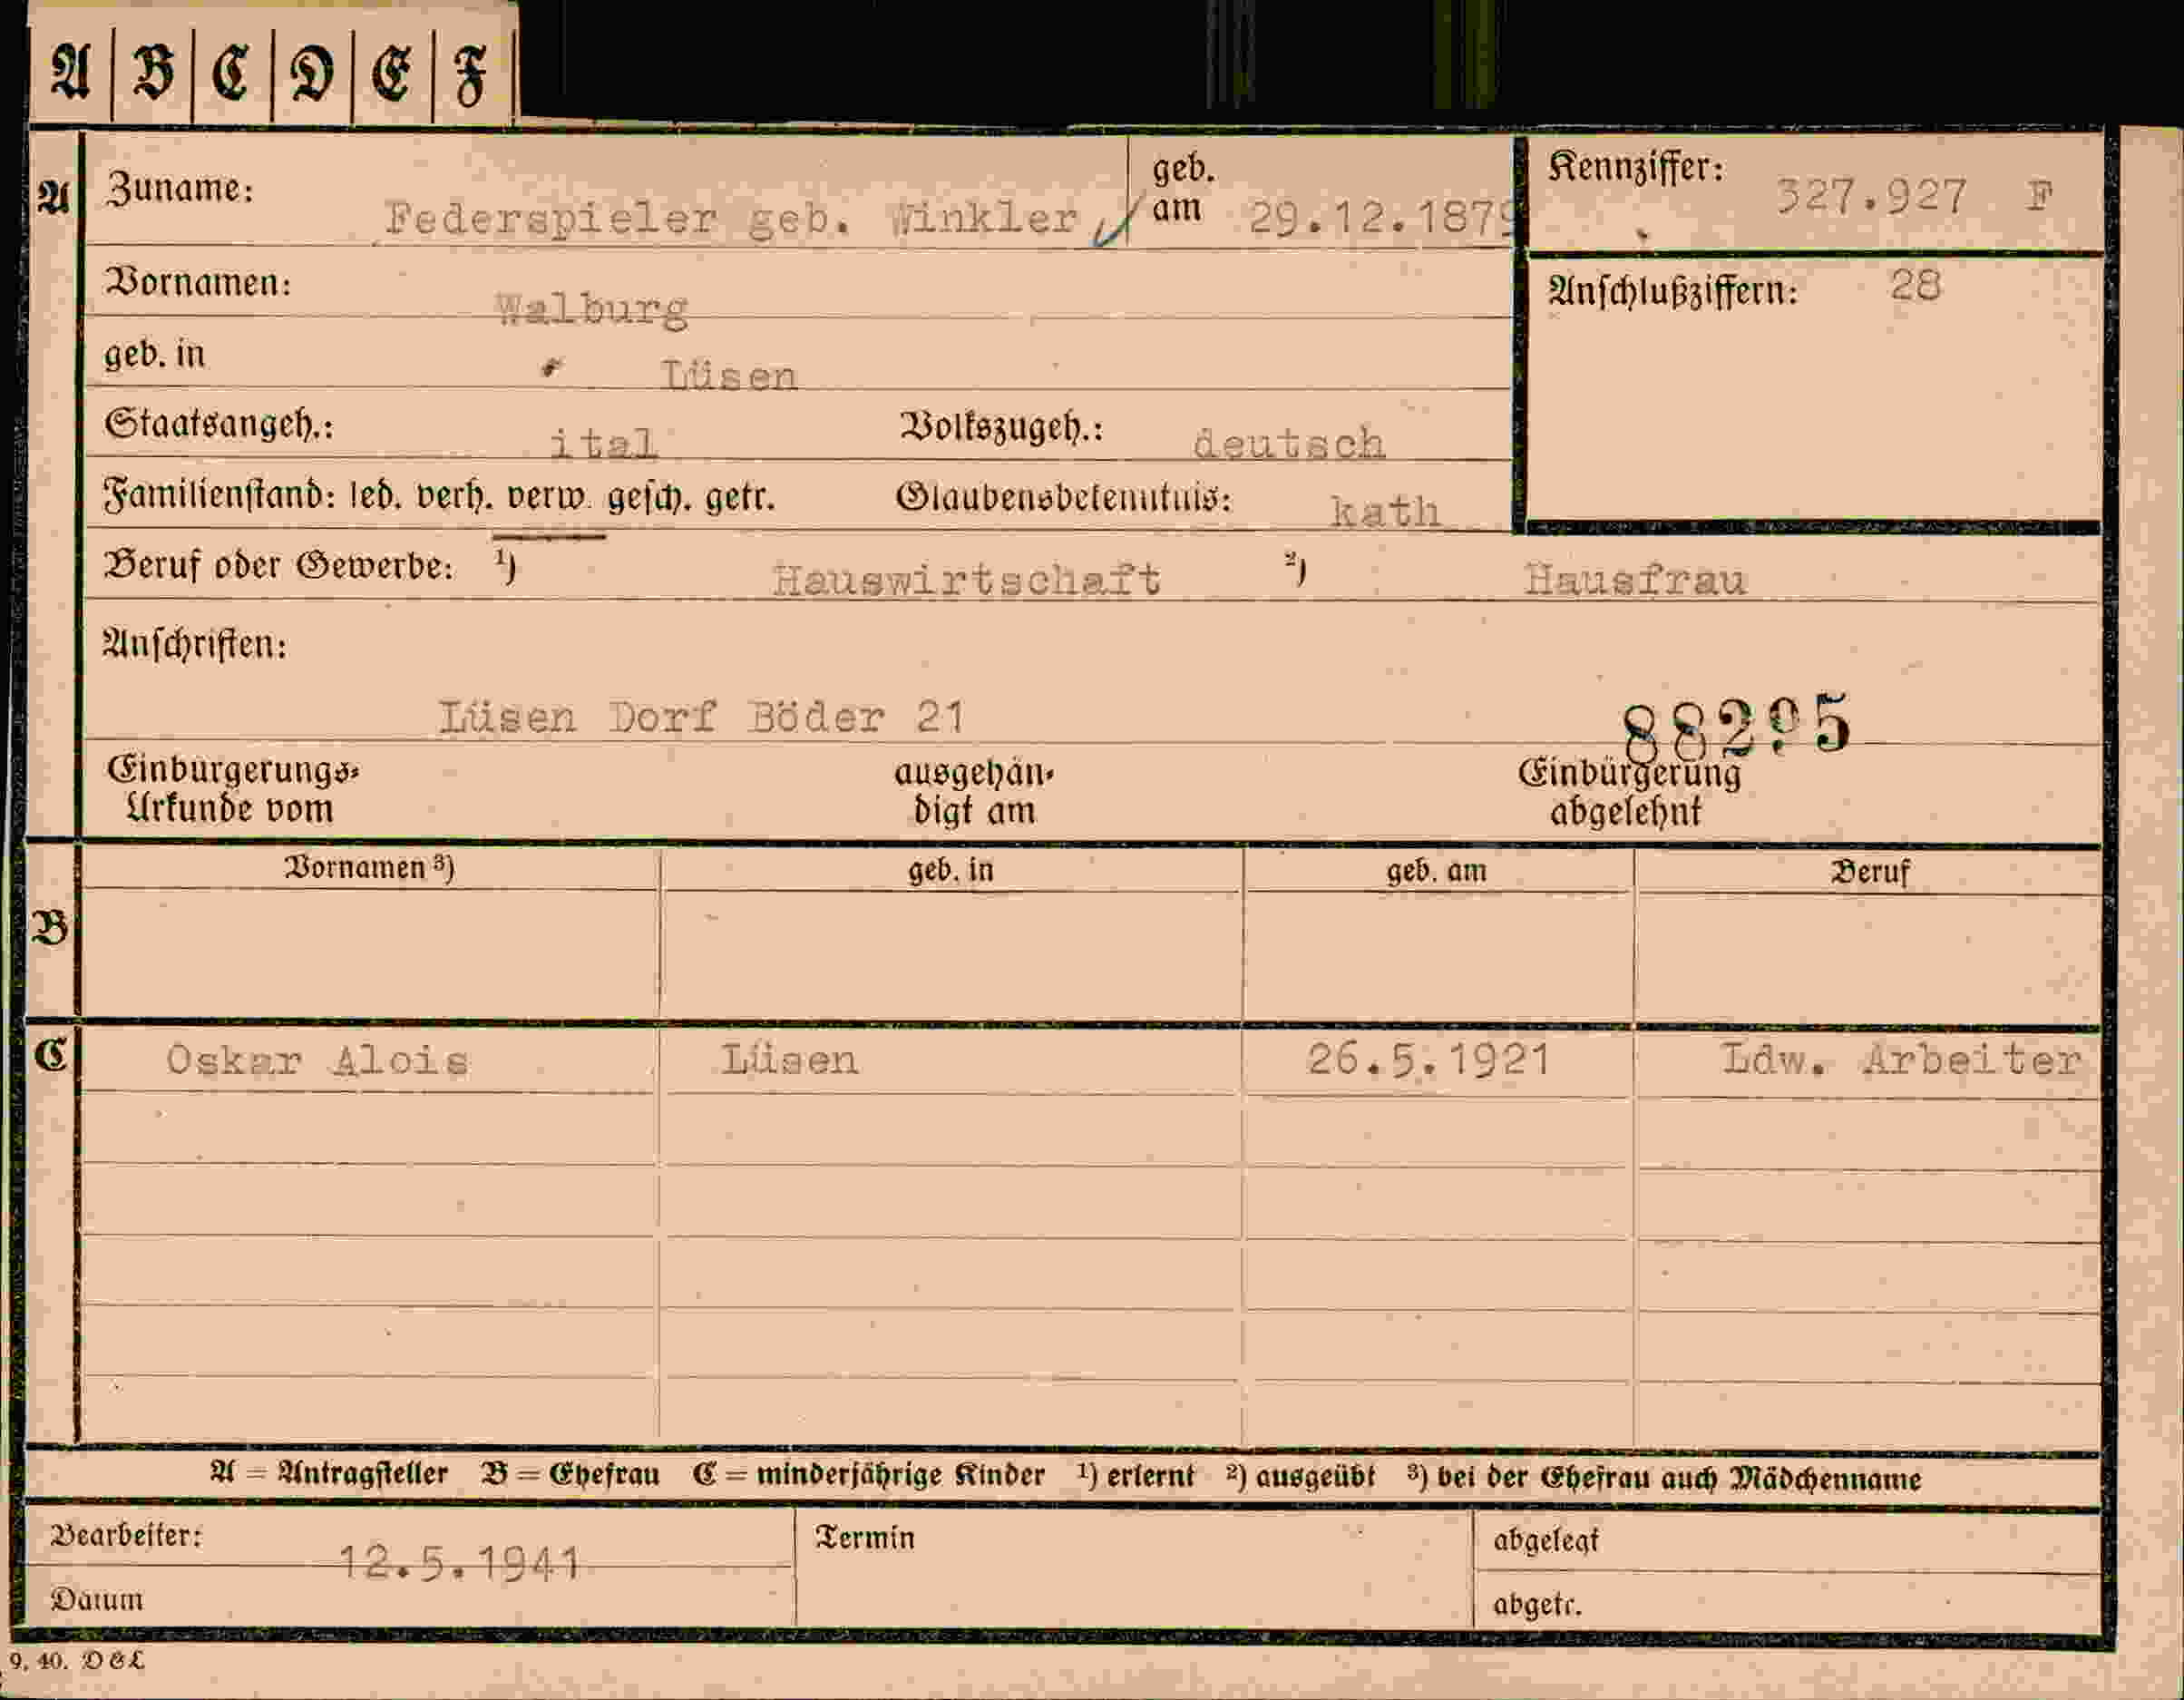 A B C D E F
A Zuname: Federspieler geb. Winkler geb. am 29.12.1879 Kennziffer: 327.927 F
Vornamen: Walburg Anschlußziffern: 28
geb. in Lüsen
Staatsangeh.: ital Volkszugeh.: deutsch
Familienstand: led. verh. verw. gesch. getr. Glaubensbekenntnis: kath
Beruf oder Gewerbe: 1) Hauswirtschaft 2) Hausfrau
Anschriften:
Lüsen Dorf Böder 21 88295
Einbürgerungs- ausgehän- Einbürgerung
Urkunde vom digt am abgelehnt
Vornamen 3) geb. in geb. am Beruf
B
C Oskar Alois Lüsen 26.5.1921 Ldw. Arbeiter
A = Antragsteller B = Ehefrau C = minderjährige Kinder 1) erlernt 2) ausgeübt 3) bei der Ehefrau auch Mädchenname
Bearbeiter: 12.5.1941 Termin abgelegt
Datum abgetr.
9. 40. DGL